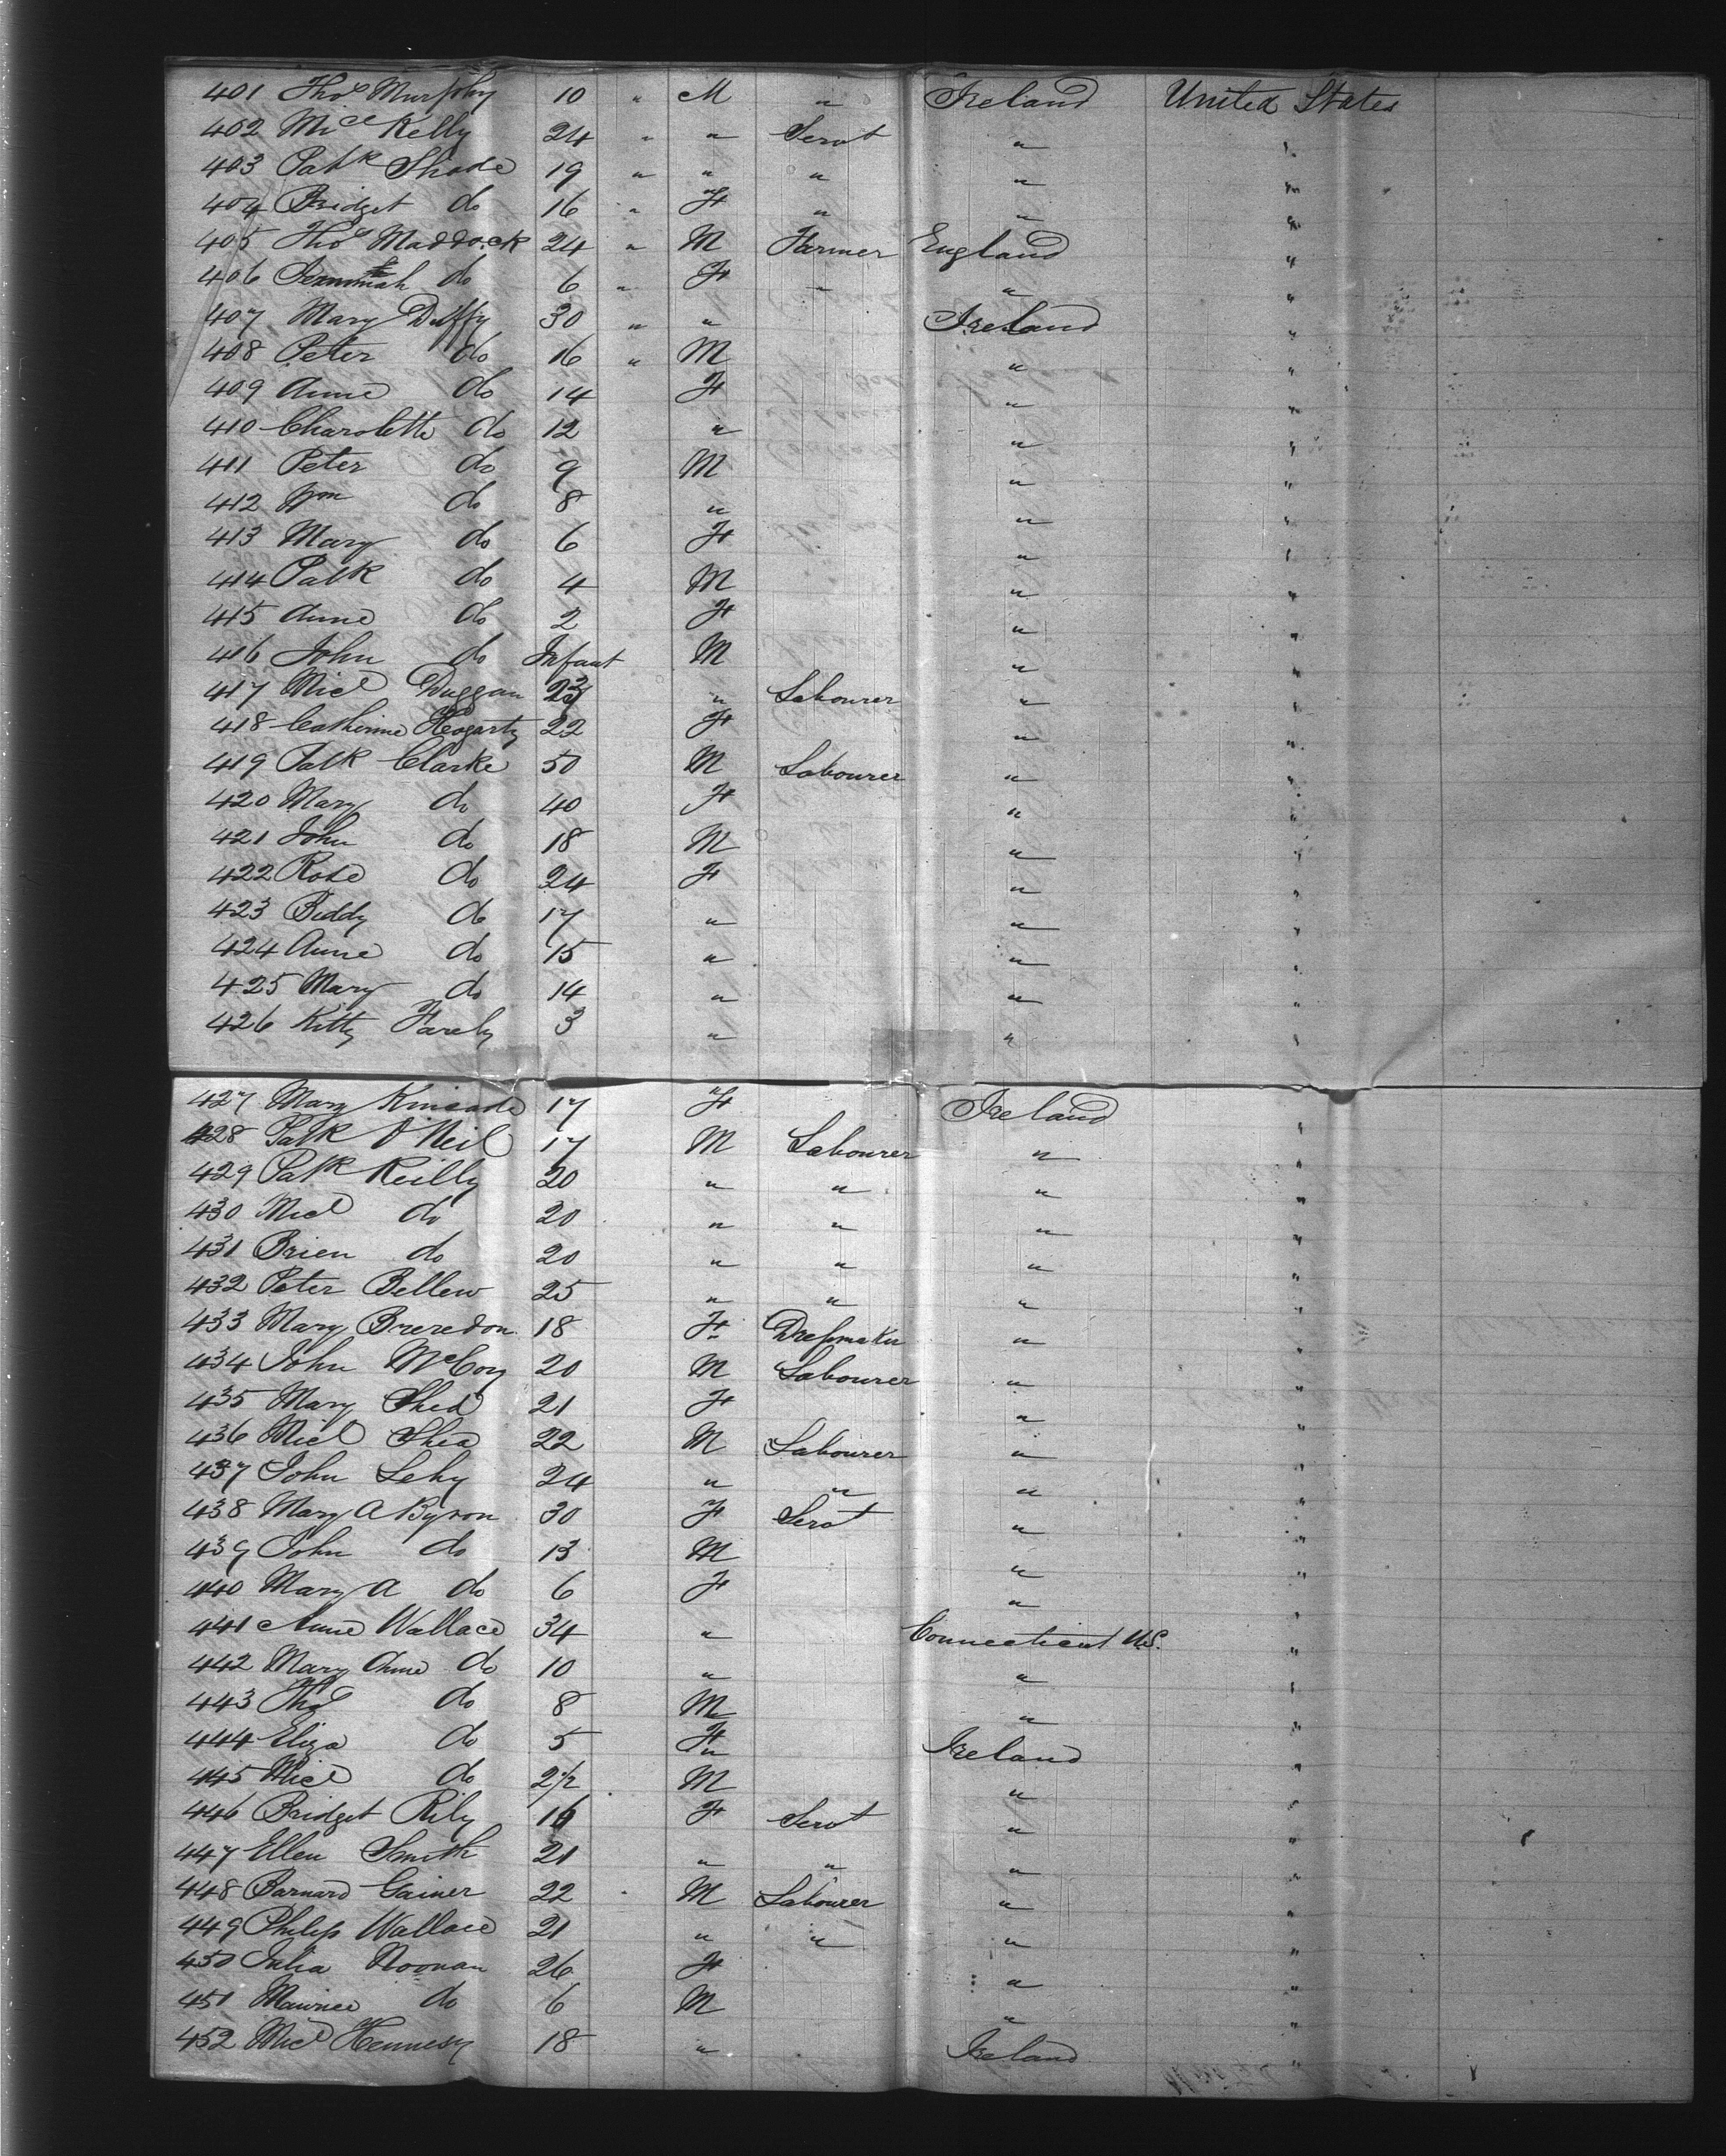 401 Thos Murphy 10 " M " Ireland United States
402 Micl Kelly 24 " " Servt " "
403 Patk Shade 19 " " " " "
404 Bridget do 16 " F " " "
405 Thos Maddock 24 " M Farmer England "
406 do 6 " F " " "
407 Mary Duffy 30 " " Ireland "
408 Peter do 16 " M " "
409 Anne do 14 F " "
410 Charolette do 12 " " "
411 Peter do 9 M " "
412 Wm do 8 " " "
413 Mary do 6 F " "
414 Patk do 4 M " "
415 Anne do 2 F " "
416 John do Infant M " "
417 Micl Duggan " Labourer " "
418 Catherine Hogarty 22 F " "
419 Patk Clarke 50 M Labourer " "
420 Mary do 40 F " "
421 John do 18 M " "
422 Rose do 24 F " "
423 Biddy do 17 " " "
424 Anne do 15 " " "
425 Mary do 14 " " "
426 Kitty Farely 3 " " "
427 Mary Kincade 17 F Ireland "
428 Patk O Neil 17 M Labourer " "
429 Patk Reilly 20 " " " "
430 Micl do 20 " " " "
431 Brien do 20 " " " "
432 Peter Bellew 25 " " " "
433 Mary Breredon 18 F Dressmaker " "
434 John McCoy 20 M Labourer " "
435 Mary Shea 21 F " "
436 Micl Shea 22 M Labourer " "
437 John Lehy 24 " " " "
438 Mary A Byron 30 F Servt " "
439 John do 13 M " "
440 Mary A do 6 F " "
441 Anne Wallace 34 " Connecticut U.S. "
442 Mary Anne do 10 " " "
443 Thos do 8 M " "
444 Eliza do 5 F Ireland "
445 Micl do 2 1/2 M " "
446 Bridget Rily 16 F Servt " "
447 Ellen Smith 21 " " " "
448 Barnard Gainer 22 M Labourer " "
449 Philip Wallace 21 " " " "
450 Julia Noonan 26 F " "
451 Maurice do 6 M " "
452 Micl Hennesy 18 " Ireland "